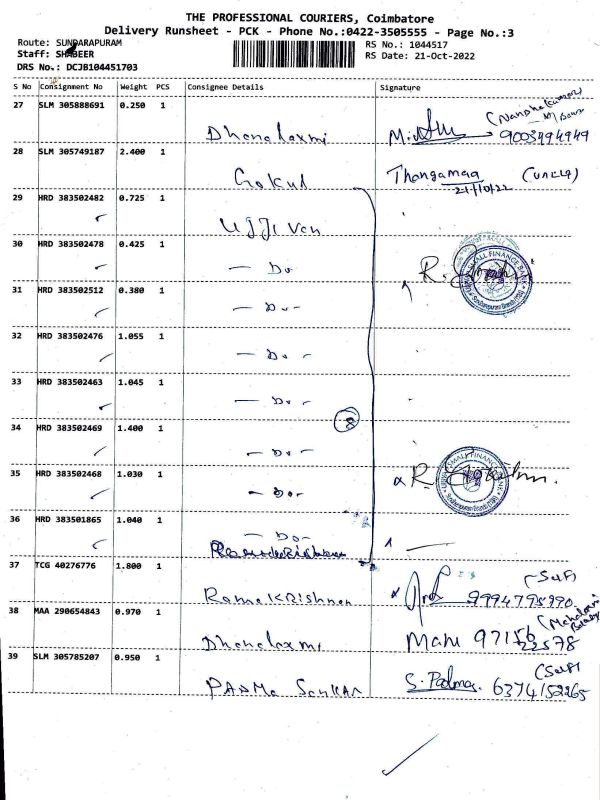 THE PROFESSIONAL COURIERS, Coimbatore
Delivery Runsheet - PCK - Phone No.:0422-3505555 - Page No.:3
Route: SUNDARAPURAM
Staff: SHABEER
DRS No.: DCJB104451703
RS No.: 1044517
RS Date: 21-Oct-2022
S No Consignment No Weight PCS Consignee Details Signature
27 SLM 305888691 0.250 1 Dhanalaxmi 9003494949
28 SLM 305749187 2.400 1 Gokul Thangamaa
21/10/22
29 HRD 383502482 0.725 1 UJJIVan
30 HRD 383502478 0.425 1 — Do
31 HRD 383502512 0.380 1 — Do —
32 HRD 383502476 1.055 1 — Do —
33 HRD 383502463 1.045 1 — Do —
8
34 HRD 383502469 1.400 1 — Do —
35 HRD 383502468 1.030 1 — Do —
36 HRD 383501865 1.040 1 — Do —
37 TCG 40276776 1.800 1 RamaKRishnan (Self) 9994795990
38 MAA 290654843 0.970 1 Dhanalaxmi Mani 97156 22578
39 SLM 305785207 0.950 1 PADMA SanKAR S. Padma. (Self) 6374152265